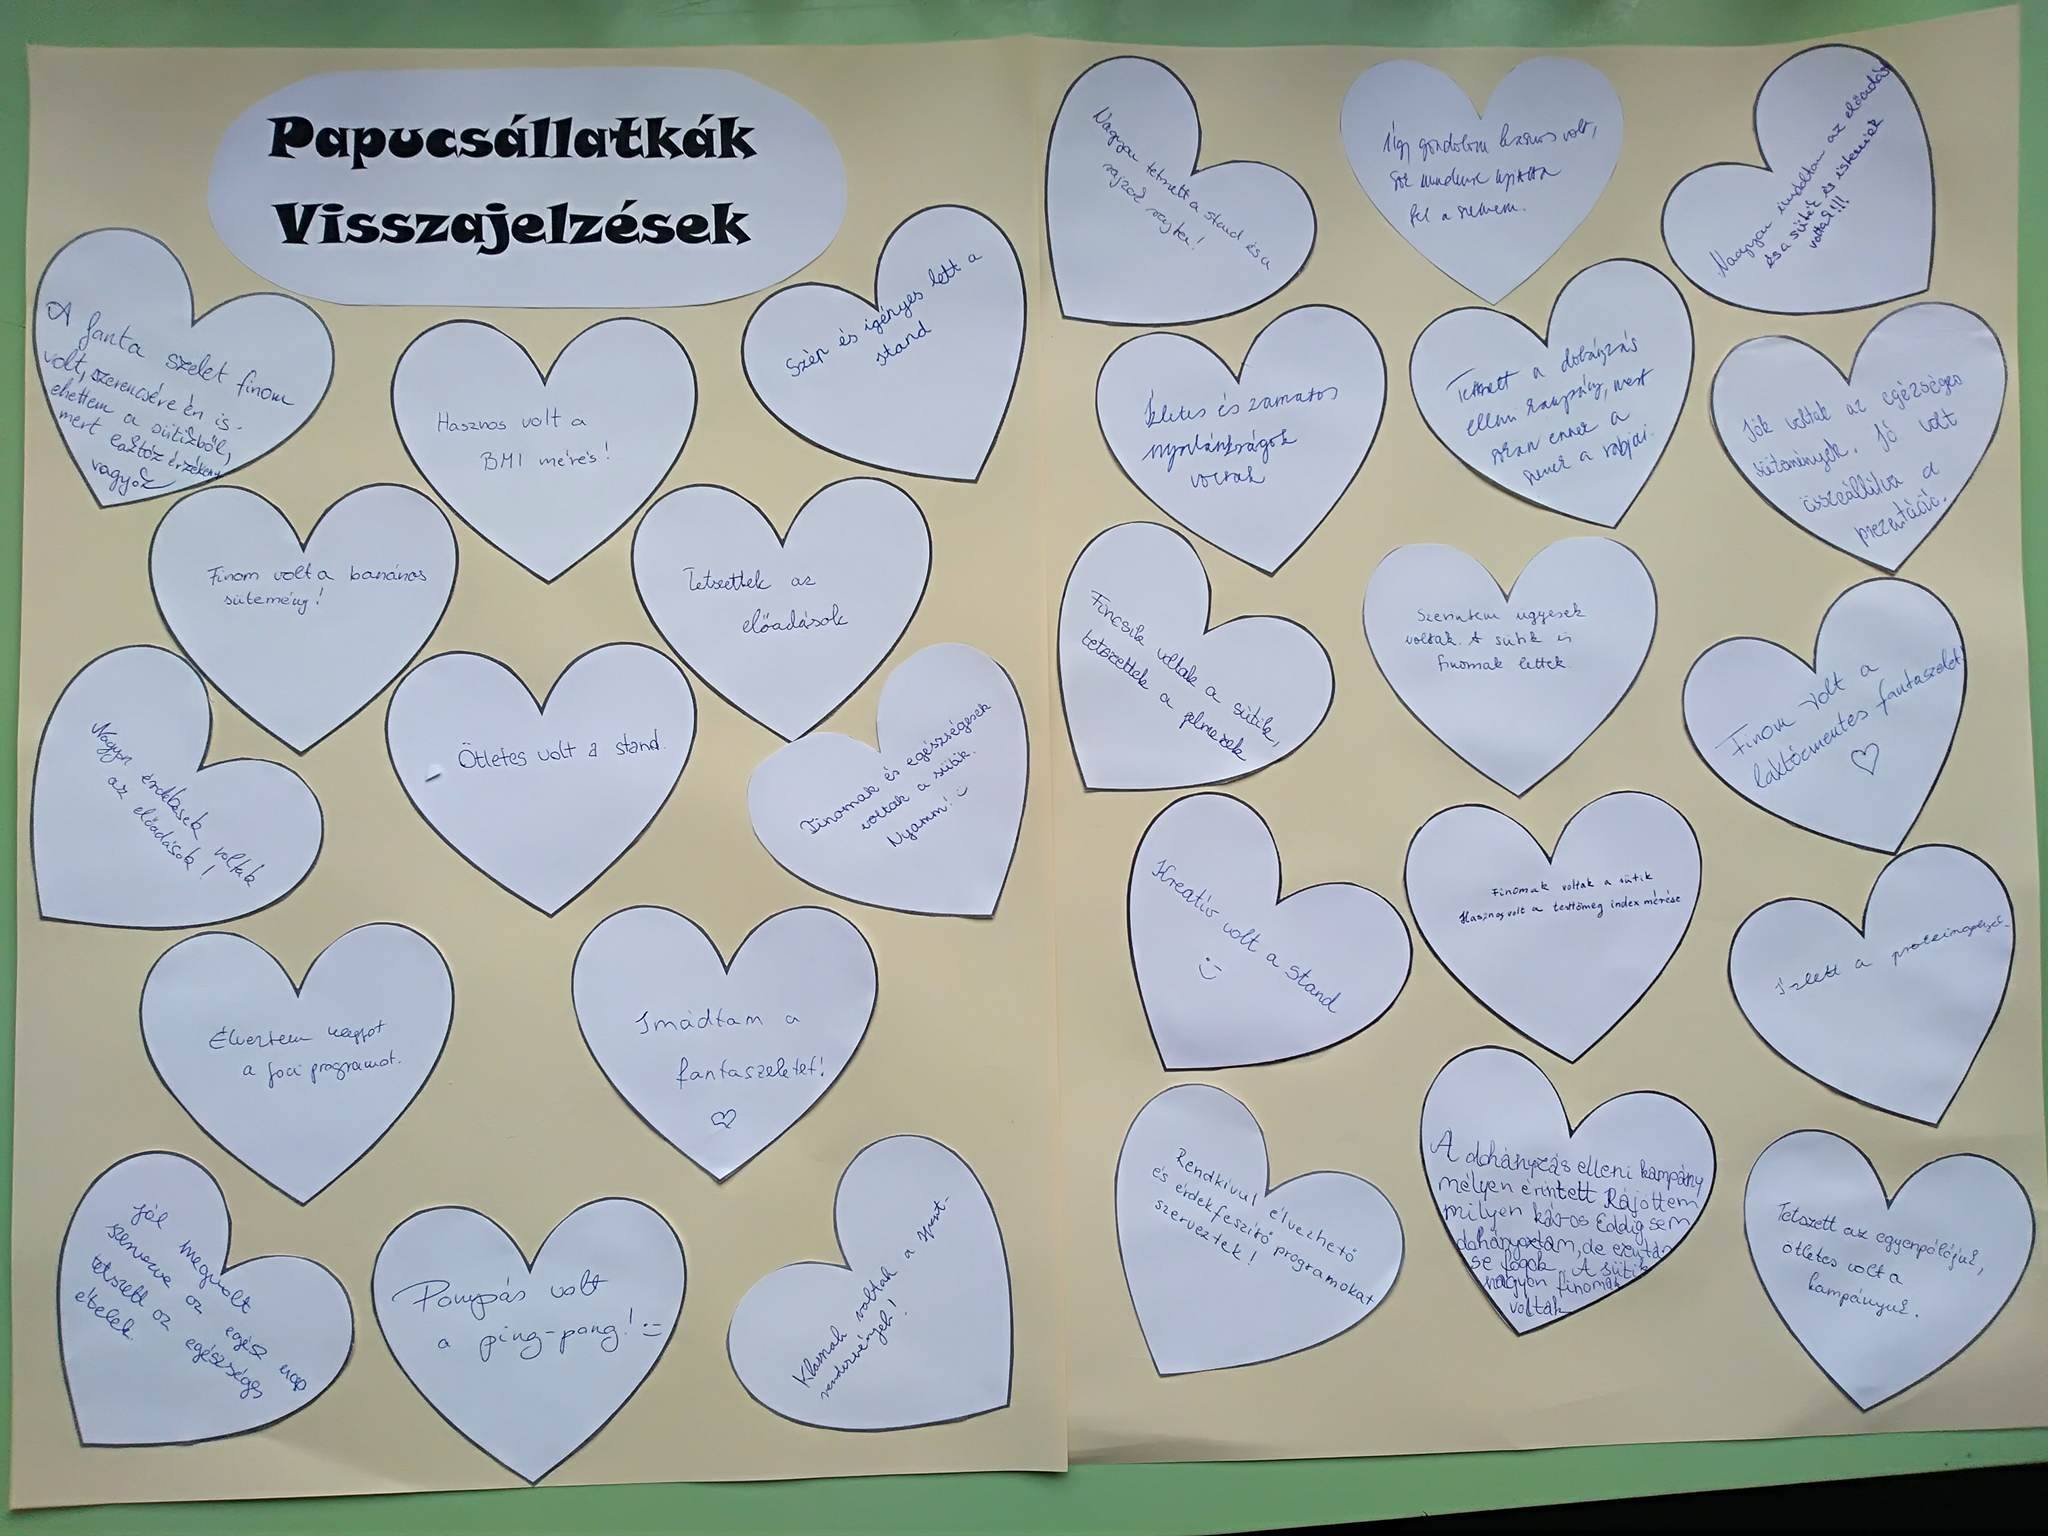 Papucsállatkák
Visszajelzések
A fanta szelet finom
volt, szerencsére én is
ehettem a sütikből,
mert laktóz érzékeny
vagyok
Hasznos volt a
BMI mérés!
Szép és igényes lett a
stand
Finom volt a banános
sütemény!
Tetszettek az
előadások
Nagyon érdekesek voltak
az előadások!
Ötletes volt a stand.
Finomak és egészségesek
voltak a sütik.
Nyamm! :)
Élveztem
a foci programot.
Imádtam a
fantaszeletet!
♡
Jól megvolt
szervezve az egész nap
tetszett az egészséges
ételek
Pompás volt
a ping-pong! :)
Klasszak voltak a sport-
rendezvények!
Nagyon tetszett a stand és a
rajzok rajta!
Úgy gondolom hasznos volt,
sok mindenre nyitotta
fel a szemem.
Nagyon imádtam az előadást
és a sütik is isteniek
voltak!!!
Ízletes és zamatos
nyalánkságok
voltak
Tetszett a dohányzás
elleni kampány, mert
sokan ennek a
rabjai.
Jók voltak az egészséges
sütemények. Jó volt
összeállítva a
prezentáció.
Fincsik voltak a sütik,
tetszettek a
Szerintem ügyesek
voltak. A sütik is
finomak lettek.
Finom volt a
laktózmentes fantaszelet!
♡
Kreatív volt a stand
:)
Finomak voltak a sütik
Hasznos volt a testtömeg index mérése
Ízlett a proteingolyó.
Rendkívül élvezhető
és érdekfeszítő programokat
szerveztek!
A dohányzás elleni kampány
mélyen érintett Rájöttem
milyen káros Eddig sem
dohányoztam, de ezután
se fogok. A sütik
nagyon finomak
voltak
Tetszett az egyenpólójuk,
ötletes volt a
kampányuk.